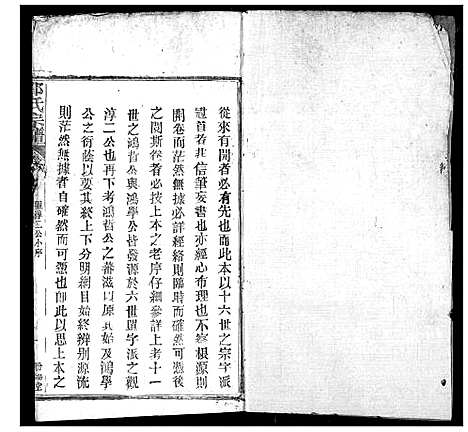 從來有開者必有先也而此本以十六世之宗字派
冠首若非信筆妄書也亦經心布理也不察根源則
開卷而茫然無據必詳經絡則臨時而確然可憑後
之閱斯卷者必按上本之老序仔細參詳上考十一
世之鴻哲公與鴻學公皆發源於六世單字派之觀
淳二公也再下考鴻哲公之蕃滋以原其始及鴻學
公之衍蔭以要其終上下分明綱目始終辨別源流
則茫然無據者自確然而可憑也即此以思上本之
氏宗譜
二公小序